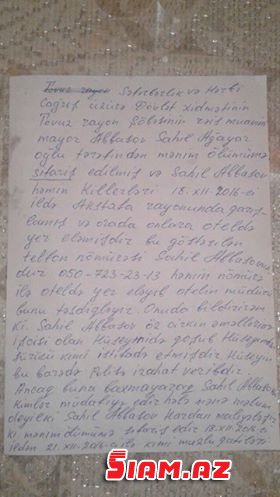 Tovuz rayon Səfərbərlik və Hərbi
Çağrış üzrə Dövlət xidmətinin
Tovuz rayon Şöbəsinin rəis muavini
mayor Abbasov Sahil Ağayar
oğlu tərəfindən mənim ölümümə
sifariş edilmiş və Sahil Abbasov
həmin Killerləri 18.XII-2016-ci
ildə Akstafa rayonunda qarşı-
lamış və orada onlara oteldə
yer eləmişdir bu göstərilən
telfon nömürəsi Sahil Abbasovun
dur 050-723-23-13 həmin nömürə
ilə oteldə yer eləyib otelin müdürü
bunu təsdiqləyir. Onuda bildirirəm
ki. Sahil Abbasov öz çirkin əməllərinə
işçisi olan Hüseynidə qoşub Hüseynidə
sürücü kimi istifadə etmişdir Hüseyn
bu barədə Polisə izahat veribdir.
Ancaq buna baxmayaraq Sahil Abbasov
kimlər müdafiyə edir hələ mənə məlum
deyil ki Sahil Abbasov Hardan maliyələşir
ki mənim ölümümə sifariş edir 18.XII-2016-ci
ildən 21.XII-2016-ci ilə kimi muzdlu qatillərə
SİAM.AZ